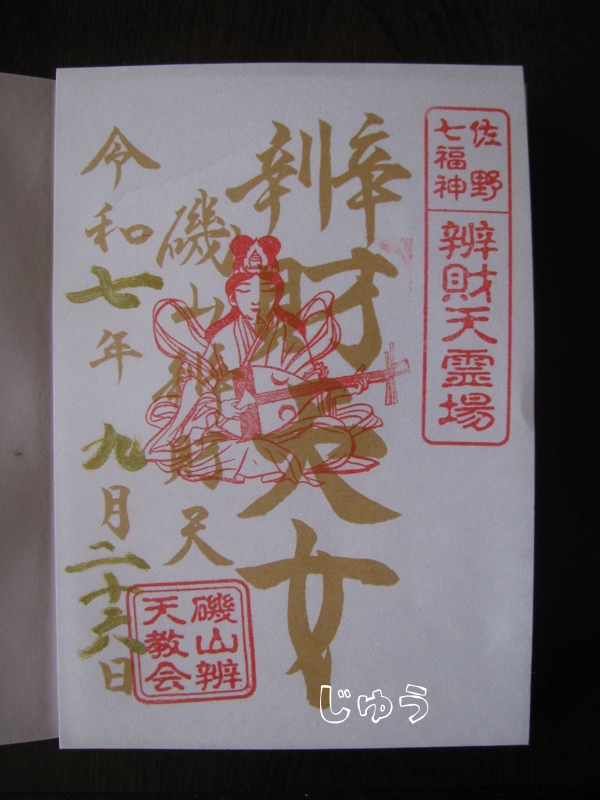 佐野
七福神
辨財天霊場
辨財天女
磯山辨財天
令和七年九月二十六日
磯山辨
天教会
じゅう